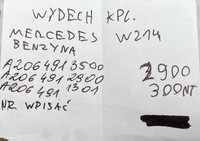 WYDECH KPL.
MERCEDES W214
BENZYNA
A206 491 3500
A206 491 2900 2900
A206 491 1301 300NT
NR WPISAĆ